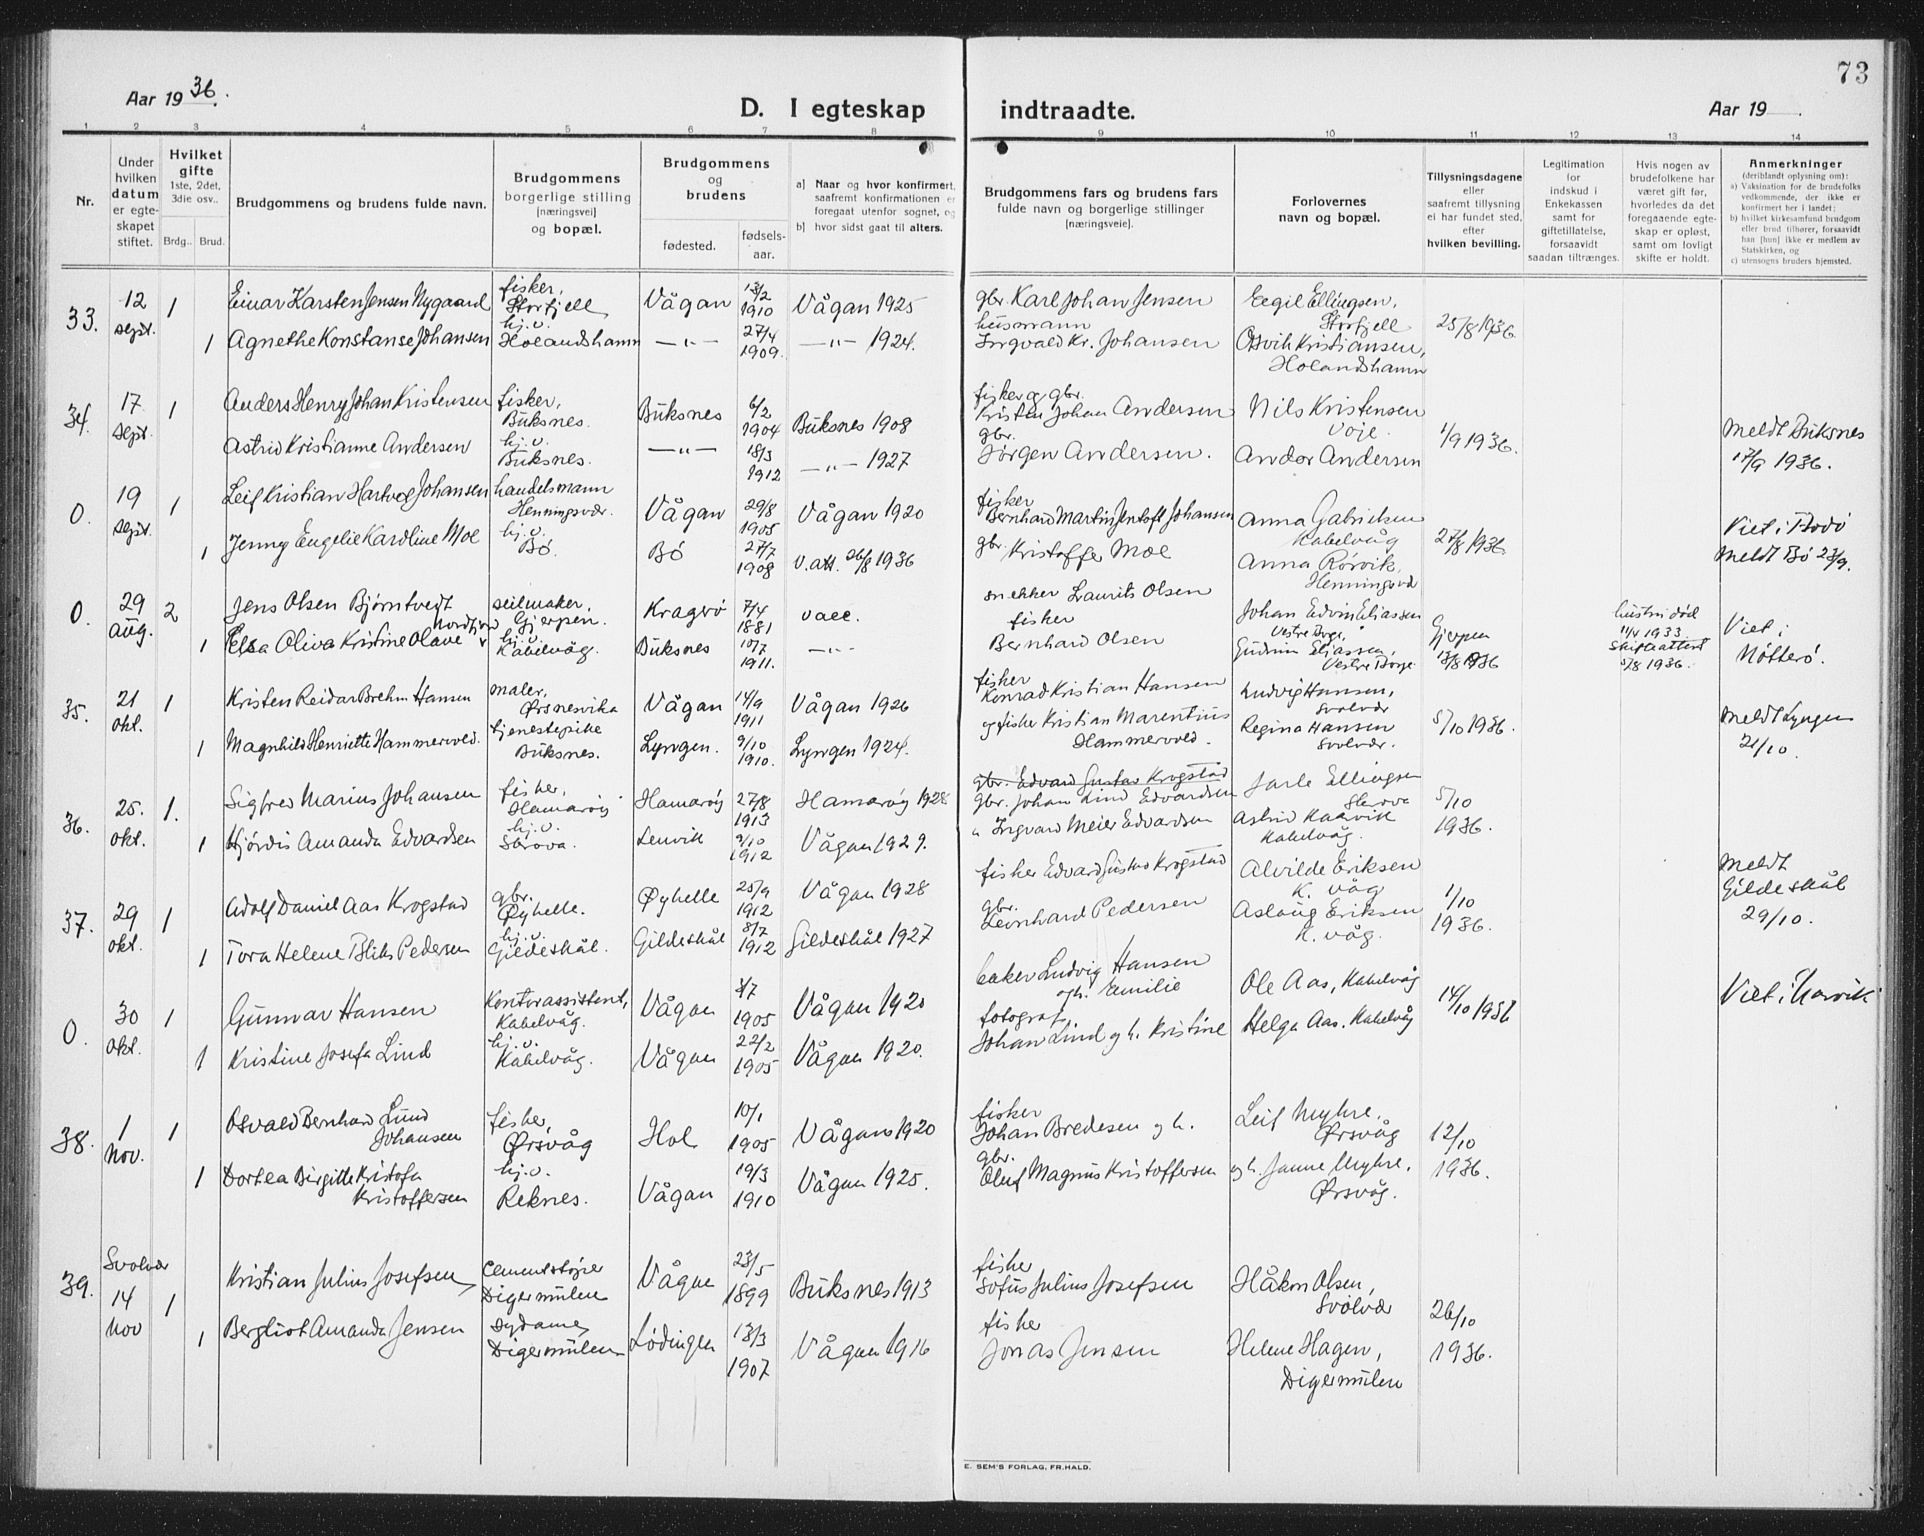 73
Aar 1936.
D. I egteskap indtraadte.
Aar 19 .
1 2 3 4 5 6 7 8 9 10 11 12 13 14
Nr.
Under hvilken datum er egteskapet stiftet.
Hvilket gifte 1ste, 2det, 3die osv..
Brdg.. Brud.
Brudgommens og brudens fulde navn.
Brudgommens borgerlige stilling [næringsvei] og bopæl.
Brudgommens og brudens
fødested.
fødsels-aar.
a) Naar og hvor konfirmert, saafremt konfirmationen er foregaat utenfor sognet, og
b) hvor sidst gaat til alters.
Brudgommens fars og brudens fars fulde navn og borgerlige stillinger [næringsveie].
Forlovernes navn og bopæl.
Tillysningsdagene eller saafremt tillysning ei har fundet sted, efter hvilken bevilling.
Legitimation for indskud i Enkekassen samt for giftetillatelse, forsaavidt saadan tiltrænges.
Hvis nogen av brudefolkene har været gift før, hvorledes da det foregaaende egteskap er opløst, samt om lovligt skifte er holdt.
Anmerkninger (deriblandt oplysning om):
a) Vaksination for de brudefolks vedkommende, der ikke er konfirmert her i landet;
b) hvilket kirkesamfund brudgom eller brud tilhører, forsaavidt han [hun] ikke er medlem av Statskirken, og
c) utensogns bruders hjemsted.
33. 12 sept. 1 Einar Karsten Jensen Nygaard fisker, Storfjell Vågan 13/2 1910 Vågan 1925 gbr. Karl Johan Jensen Eegil Ellingsen, Storfjell 25/8 1936
1 Agnethe Konstanse Johansen hj.v. Holandshamn —"— 27/4 1909. —"— 1924. husmann Ingvald Kr. Johansen Kristiansen, Holandshamn
34. 17 sept. 1 Anders Henry Johan Kristensen fisker, Buksnes. Buksnes 6/2 1904 Buksnes 1908 fisker og gbr. Kristen Johan Andersen Nils Kristensen Voje. 1/9 1936. Meldt Buksnes 17/9 1936.
Astrid Kristianne Andersen hj.v. Buksnes. —"— 18/3 1912 —"— 1927 gbr. Jørgen Andersen. Andor Andersen
0. 19 sept. 1 Leif Kristian Hartvig Johansen handelsmann Henningsvær. Vågan 29/8 1905 Vågan 1920 fisker Bernhard Martin Jentoft Johansen Anna Gabrielsen Kabelvåg 27/8 1936 Viet i Bodø
1 Jenny Engelie Karoline Moe hj.v. Bø. Bø 27/7 1908 v.att. 26/8 1936 gbr. Kristoffer Moe Anna Rørvik, Henningsvær Meldt Bø 23/9.
0. 29 aug. 2 Jens Olsen Bjørntvedt seilmaker, Gjerpen. Kragerø 7/4 1881 vacc. snekker Laurits Olsen Johan Edvin Eliassen Vestre Borge, Gjerpen 13/8 1936 hustru død 11/4 1933 Skifteattest 5/8 1936. Viet i Nøtterø.
1 Elsa Oliva Kristine Olave hj.v. Kabelvåg. Buksnes 10/7 1911. —"— fisker Bernhard Olsen Gudrun Eliassen, Vestre Borge
35. 21 okt. 1 Kristen Reidar Brehm Hansen maler, Ørsnesvika Vågan 14/9 1911 Vågan 1926 fisker Konrad Kristian Hansen Ludvig Hansen, Svolvær 5/10 1936. Meldt Lyngen 21/10.
1 Magnhild Henriette Hammervold. tjenestepike Buksnes. Lyngen. 9/10 1910. Lyngen 1924. og fisker Kristian Marentius Hammervold. Regina Hansen Svolvær.
36. 25. okt. 1. Sigfred Marius Johansen fisker, Hamarøy Hamarøy 27/8 1913 Hamarøy 1928 gbr. Edvard Gustav Krogstad gbr. Johan Lind Edvardsen Jarle Ellingsen Skrova 5/10 1936.
1 Hjørdis Amanda Edvardsen hj.v. Skrova. Lenvik 9/10 1912 Vågan 1929. " Ingvard Meier Edvardsen Astrid Kaarvik Kabelvåg.
37. 29 okt. 1 Adolf Daniel Aas Krogstad gbr. Øyhelle. Øyhelle 25/9 1912 Vågan 1928 fisker Edvard Gustav Krogstad Alvilde Eriksen K. våg 1/10 1936. Meldt Gildeskål 29/10.
1 Tora Helene Bliks Pedersen hj.v. Gildeskål. Gildeskål 8/7 1912 Gildeskål 1927 gbr. Leonhard Pedersen Aslaug Eriksen K. våg.
0. 30 okt. 1 Gunnar Hansen Kontorassistent, Kabelvåg. Vågan 3/7 1905 Vågan 1920 baker Ludvig Hansen og h. Emilie Ole Aas, Kabelvåg 14/10 1936 Viet i Narvik
1 Kristine Josefa Lind hj.v. Kabelvåg. Vågan 22/2 1905 Vågan 1920. fotograf Johan Lind og h. Kristine Helga Aas. Kabelvåg
38. 1 Nov. 1 Osvald Bernhard Lund Johansen fisker, Ørsvåg Hol 10/1 1905 Vågan 1920 fisker Johan Bredesen og h. Leif Myhre, Ørsvåg 12/10 1936.
1 Dortea Birgitte Kristofa Kristoffersen hj.v. Reknes. Vågan 19/3 1910 Vågan 1925. gbr. Oluf Magnus Kristoffersen og h. Janne Myhre, Ørsvåg.
39. Svolvær 14 Nov 1 Kristian Julius Josefsen Cementstøper Digermulen Vågan 23/5 1899 Buksnes 1913 fisker Sofus Julius Josefsen Håkon Olsen, Svolvær 26/10 1936.
1 Bergliot Amanda Jensen Sydame, Digermulen Lødingen 13/3 1907 Vågan 1916 fisker Jonas Jensen Helene Hagen, Digermulen
E. SEM'S FORLAG, FR.HALD.